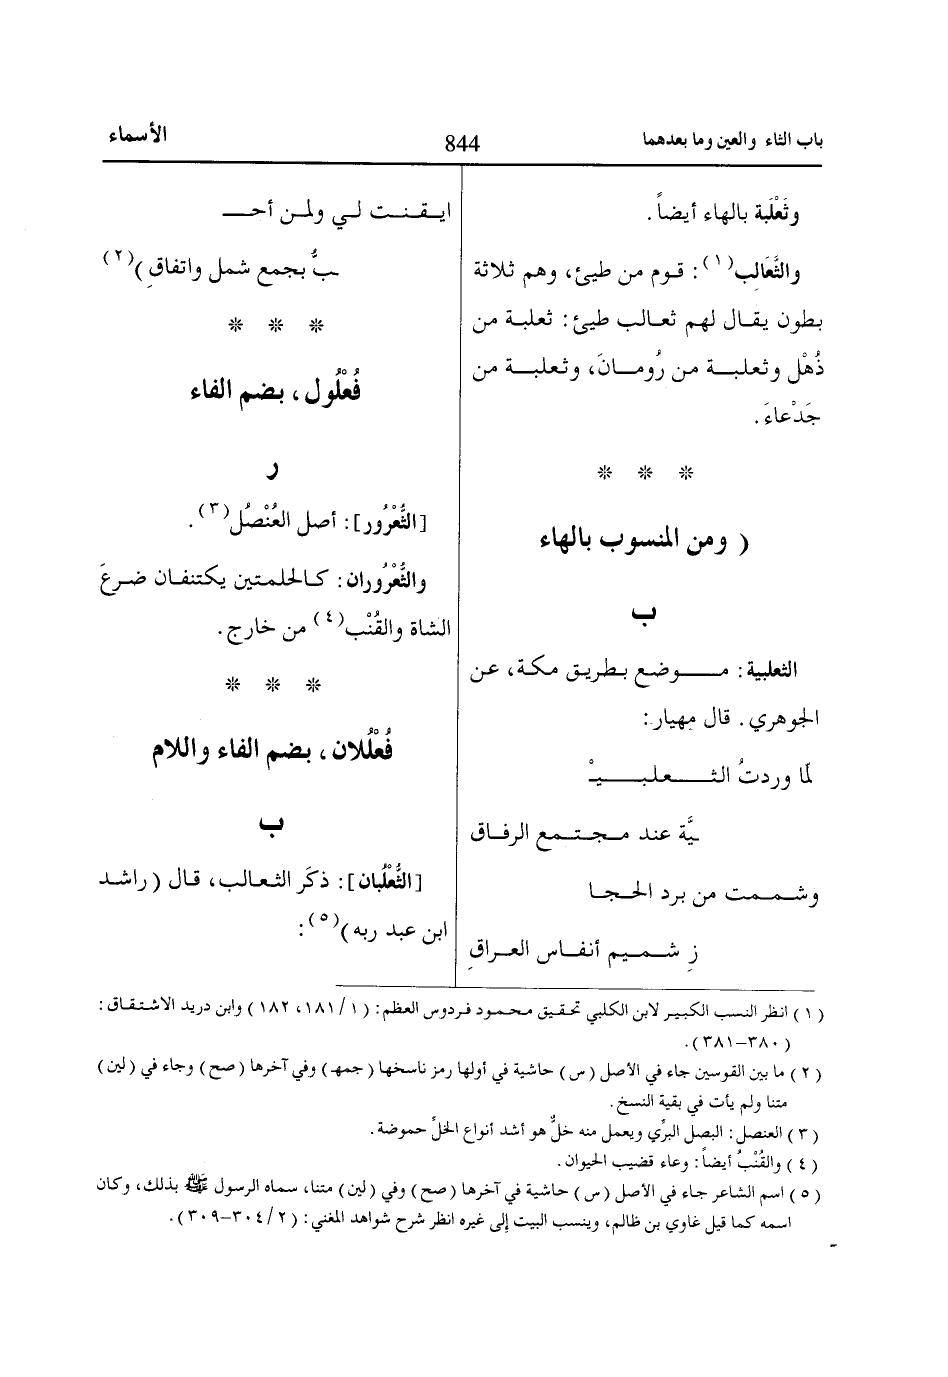 باب الثاء والعين وما بعدهما
844
الأسماء
وثَعْلَبة بالهاء أيضاً.
والثَّعَالب(١): قوم من طيئ، وهم ثلاثة
بطون يقال لهم ثعالب طيئ: ثعلبة من
ذُهْل وثعلبة من رُومانَ، وثعلبة من
جَدْعاءَ.
* * *
( ومن المنسوب بالهاء
ب
الثعلبية: موضع بطريق مكة، عن
الجوهري. قال مهيار:
لمّا وردتُ الثعلبيْـ
ـيَّة عند مجتمع الرفاق
وشممت من برد الحجا
زِ شميم أنفاس العراقِ
ايقنت لي ولمن أحـ
ـبُّ بجمع شمل واتفاقِ)(٢)
* * *
فُعْلُول، بضم الفاء
ر
[الثُّعْرُور]: أصل العُنْصُل(٣).
والثُّعْرُوران: كالحلمتين يكتنفان ضرعَ
الشاة والقُنْب(٤) من خارج.
* * *
فُعْلُلان، بضم الفاء واللام
ب
[الثُّعْلُبان]: ذكَر الثعالب، قال (راشد
ابن عبد ربه)(٥):
(١) انظر النسب الكبير لابن الكلبي تحقيق محمود فردوس العظم: (١/ ١٨١، ١٨٢) وابن دريد الاشتقاق:
(٣٨٠-٣٨١).
(٢) ما بين القوسين جاء في الأصل (س) حاشية في أولها رمز ناسخها (جمهـ) وفي آخرها (صح) وجاء في (لين)
متنا ولم يأت في بقية النسخ.
(٣) العنصل: البصل البرِّي ويعمل منه خلٌّ هو أشد أنواع الخلِّ حموضة.
(٤) والقُنْبُ أيضاً: وعاء قضيب الحيوان.
(٥) اسم الشاعر جاء في الأصل (س) حاشية في آخرها (صح) وفي (لين) متنا، سماه الرسول ﷺ بذلك، وكان
اسمه كما قيل غاوي بن ظالم، وينسب البيت إلى غيره انظر شرح شواهد المغني: (٢/ ٣٠٤-٣٠٩).